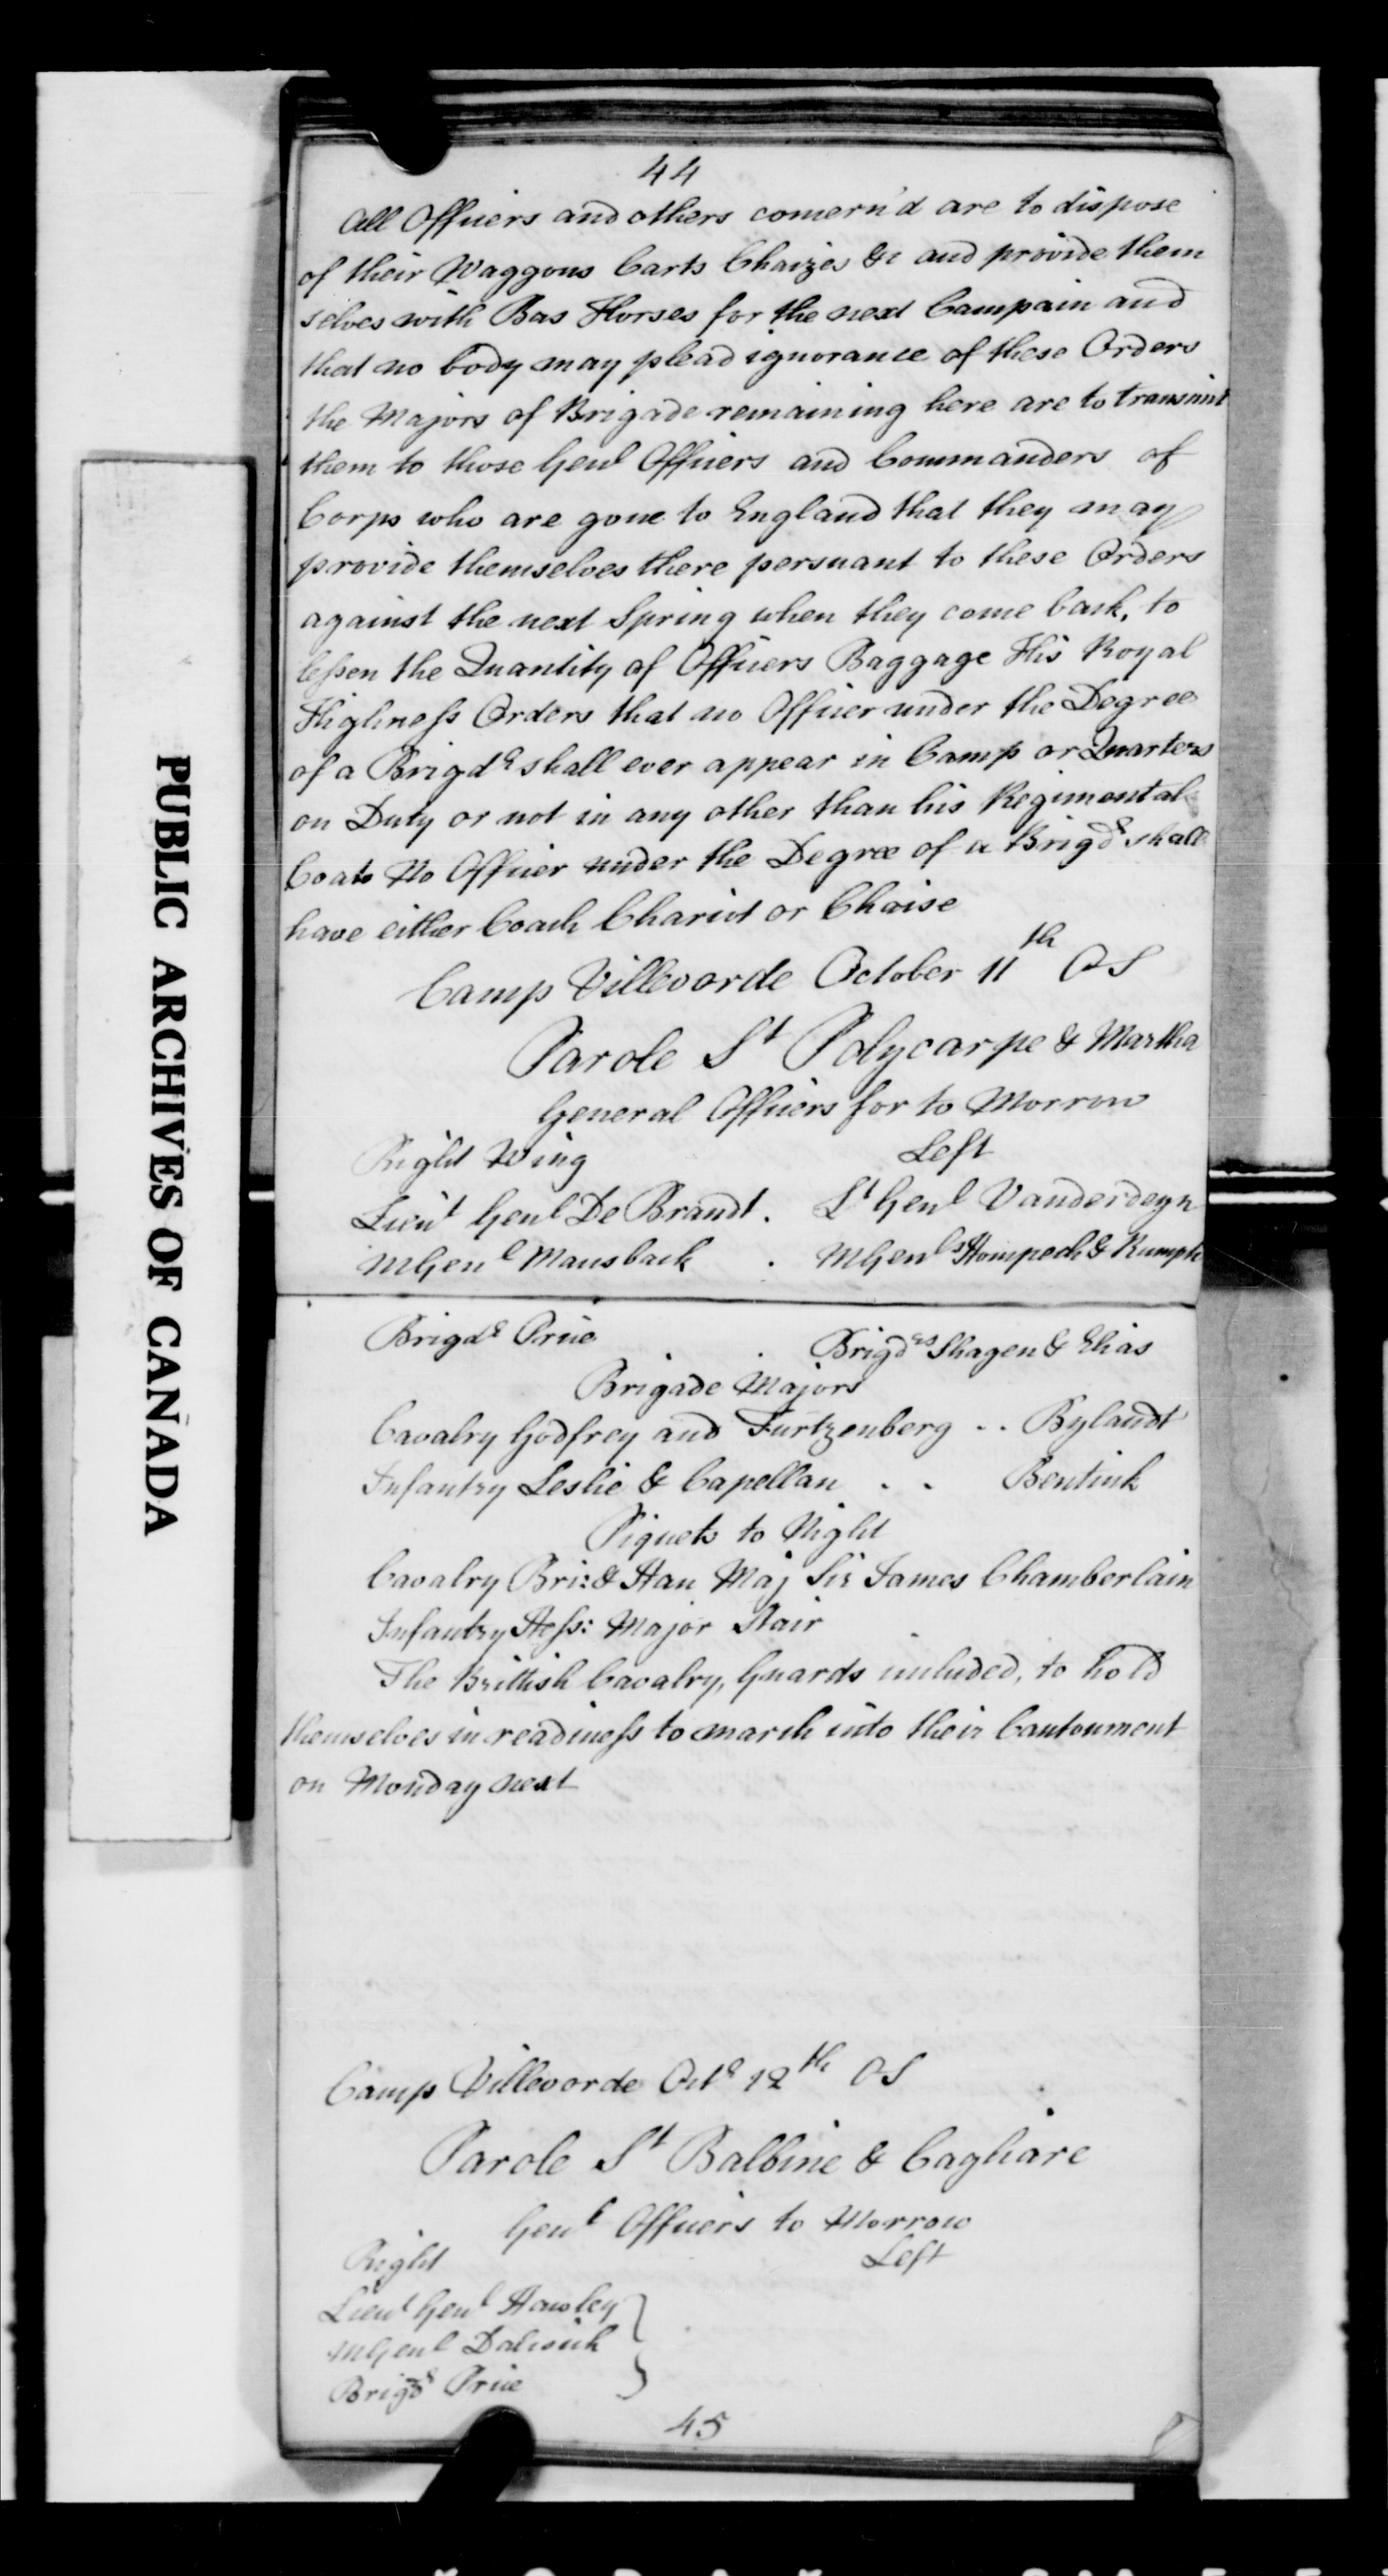 44
All Officers and others concern'd are to dispose
of their Waggons Carts Chaizes &c and provide them
selves with Bas Horses for the next Campain and
that no body may plead ignorance of these Orders
the Majors of Brigade remaining here are to transmit
them to those Genl Officers and Commanders of
Corps who are gone to England that they may
provide themselves there persuant to these Orders
against the next Spring when they come back, to
lessen the Quantity of Officers Baggage His Royal
Highness Orders that no Officer under the Degree
of a Brigdr shall ever appear in Camp or Quarters
on Duty or not in any other than his Regimental
Coats No Officer under the Degree of a Brigdr shall
have either Coach Chariot or Chaise
Camp Villevorde October 11th OS
Parole St Polycarpe & Martha
General Officers for to Morrow
Right Wing Left
Lieut Genl De Brandt. Lt Genl Vanderdeyn
MGenl Mansback . MGenls Hompech & Rumph
Brigdr Price . . Brigdrs Shagen & Elias
Brigade Majors
Cavalry Godfrey and Furtzenberg .. Bylandt
Infantry Leslie & Capellan . . Bentink
Piquets to Night
Cavalry Bri: & Han Maj Sir James Chamberlain
Infantry Hess: Major Stair
The Brittish Cavalry, Guards included, to hold
themselves in readiness to march into their Cantonment
on Monday next
Camp Villevorde Octr 12th OS
Parole St Balbine & Cagliare
Genl Officers to Morrow
Right Left
Lieut Genl Hawley
MGenl Dalwick
Brigdr Price
45
PUBLIC ARCHIVES OF CANADA